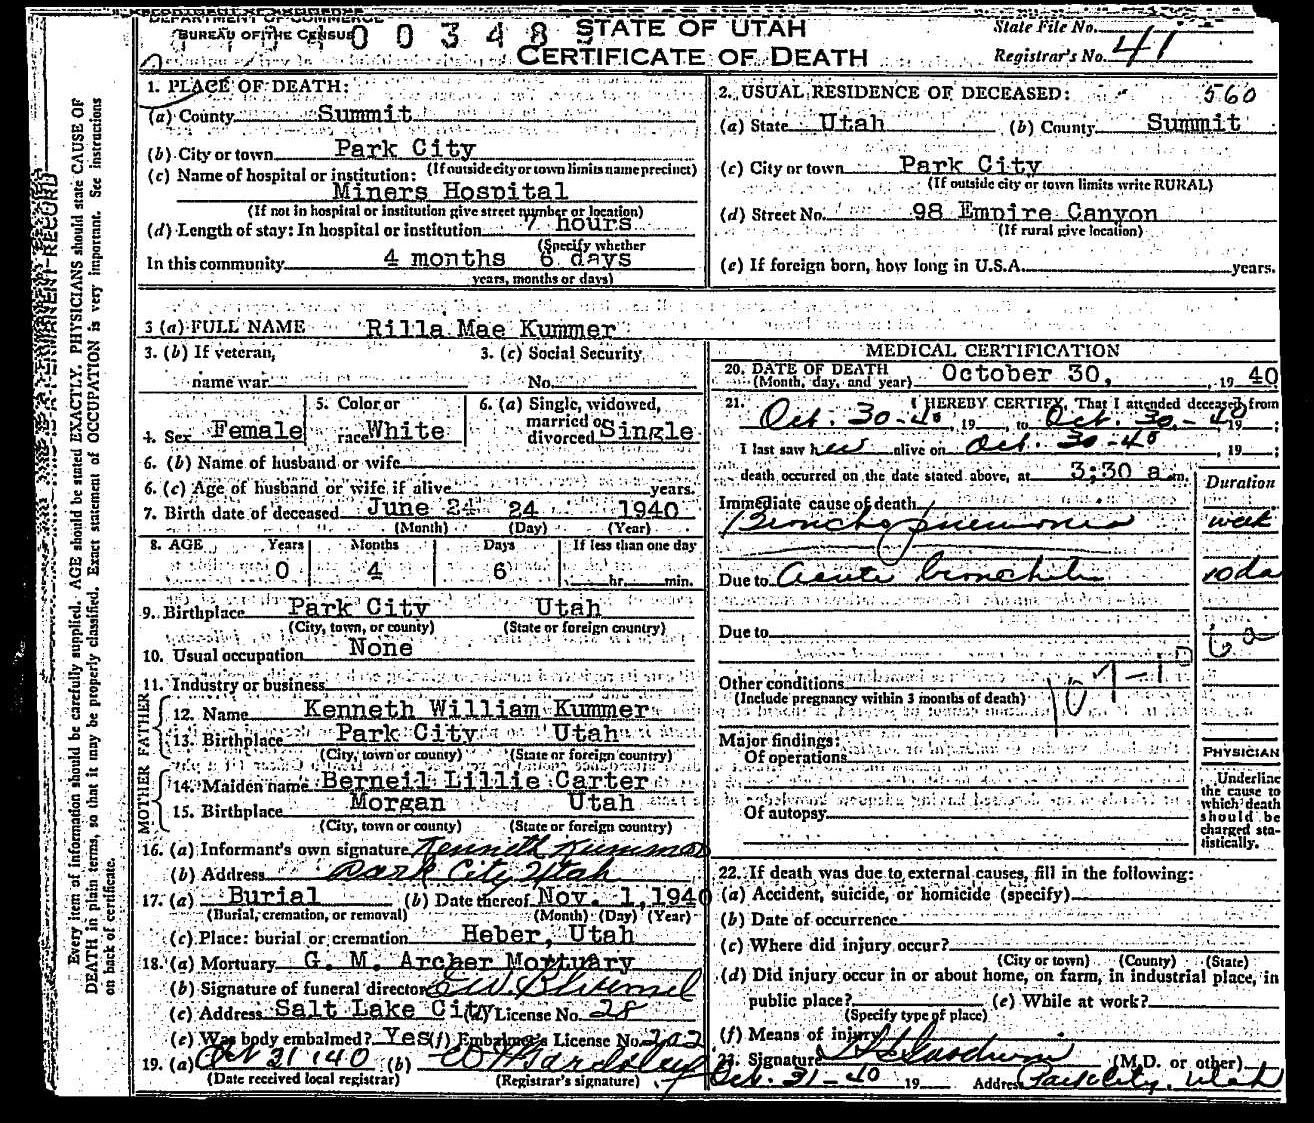 DEPARTMENT OF COMMERCE
BUREAU OF THE CENSUS
0 0 3 4 8
STATE OF UTAH
CERTIFICATE OF DEATH
State File No.
Registrar's No. 41
Every item of information should be carefully supplied. AGE should be stated EXACTLY. PHYSICIANS should state CAUSE OF
DEATH in plain terms, so that it may be properly classified. Exact statement of OCCUPATION is very important. See instructions
on back of certificate.
1. PLACE OF DEATH:
(a) County Summit
(b) City or town Park City
(If outside city or town limits name precinct)
(c) Name of hospital or institution:
Miners Hospital
(If not in hospital or institution give street number or location)
(d) Length of stay: In hospital or institution 7 hours
(Specify whether
In this community 4 months 6 days
years, months or days)
2. USUAL RESIDENCE OF DECEASED: 560
(a) State Utah (b) County Summit
(c) City or town Park City
(If outside city or town limits write RURAL)
(d) Street No. 98 Empire Canyon
(If rural give location)
(e) If foreign born, how long in U.S.A. years.
3 (a) FULL NAME Rilla Mae Kummer
3. (b) If veteran, 3. (c) Social Security
name war No.
4. Sex Female
5. Color or
race White
6. (a) Single, widowed,
married or
divorced Single
6. (b) Name of husband or wife
6. (c) Age of husband or wife if alive years.
7. Birth date of deceased June 24 24 1940
(Month) (Day) (Year)
8. AGE Years Months Days If less than one day
0 4 6 hr. min.
9. Birthplace Park City Utah
(City, town, or county) (State or foreign country)
10. Usual occupation None
11. Industry or business
FATHER
12. Name Kenneth William Kummer
13. Birthplace Park City Utah
(City, town or county) (State or foreign country)
MOTHER
14. Maiden name Berneil Lillie Carter
15. Birthplace Morgan Utah
(City, town or county) (State or foreign country)
16. (a) Informant's own signature Kenneth Kummer
(b) Address Park City Utah
17. (a) Burial (b) Date thereof Nov. 1, 1940
(Burial, cremation, or removal) (Month) (Day) (Year)
(c) Place: burial or cremation Heber, Utah
18. (a) Mortuary G. M. Archer Mortuary
(b) Signature of funeral director
(c) Address Salt Lake City (d) License No. 28
(e) Was body embalmed? Yes (f) Embalmer's License No. 202
19. (a) Oct 31 '40 (b)
(Date received local registrar) (Registrar's signature)
MEDICAL CERTIFICATION
20. DATE OF DEATH
(Month, day, and year) October 30, , 19 40
21. I HEREBY CERTIFY, That I attended deceased from
Oct. 30-40, 19 , to Oct. 30-40 19 ;
I last saw her alive on Oct. 30-40 , 19 ;
death occurred on the date stated above, at 3;30 a m.
Duration
Immediate cause of death
Broncho pneumonia week
Due to Acute bronchitis 10 da
Due to
Other conditions
(Include pregnancy within 3 months of death)
107-
Major findings:
Of operations
Of autopsy
PHYSICIAN
Underline
the cause to
which death
should be
charged sta-
tistically.
22. If death was due to external causes, fill in the following:
(a) Accident, suicide, or homicide (specify)
(b) Date of occurrence
(c) Where did injury occur?
(City or town) (County) (State)
(d) Did injury occur in or about home, on farm, in industrial place, in
public place? (e) While at work?
(Specify type of place)
(f) Means of injury
23. Signature (M.D. or other)
Oct. 31-40 19 Address Park City, Utah